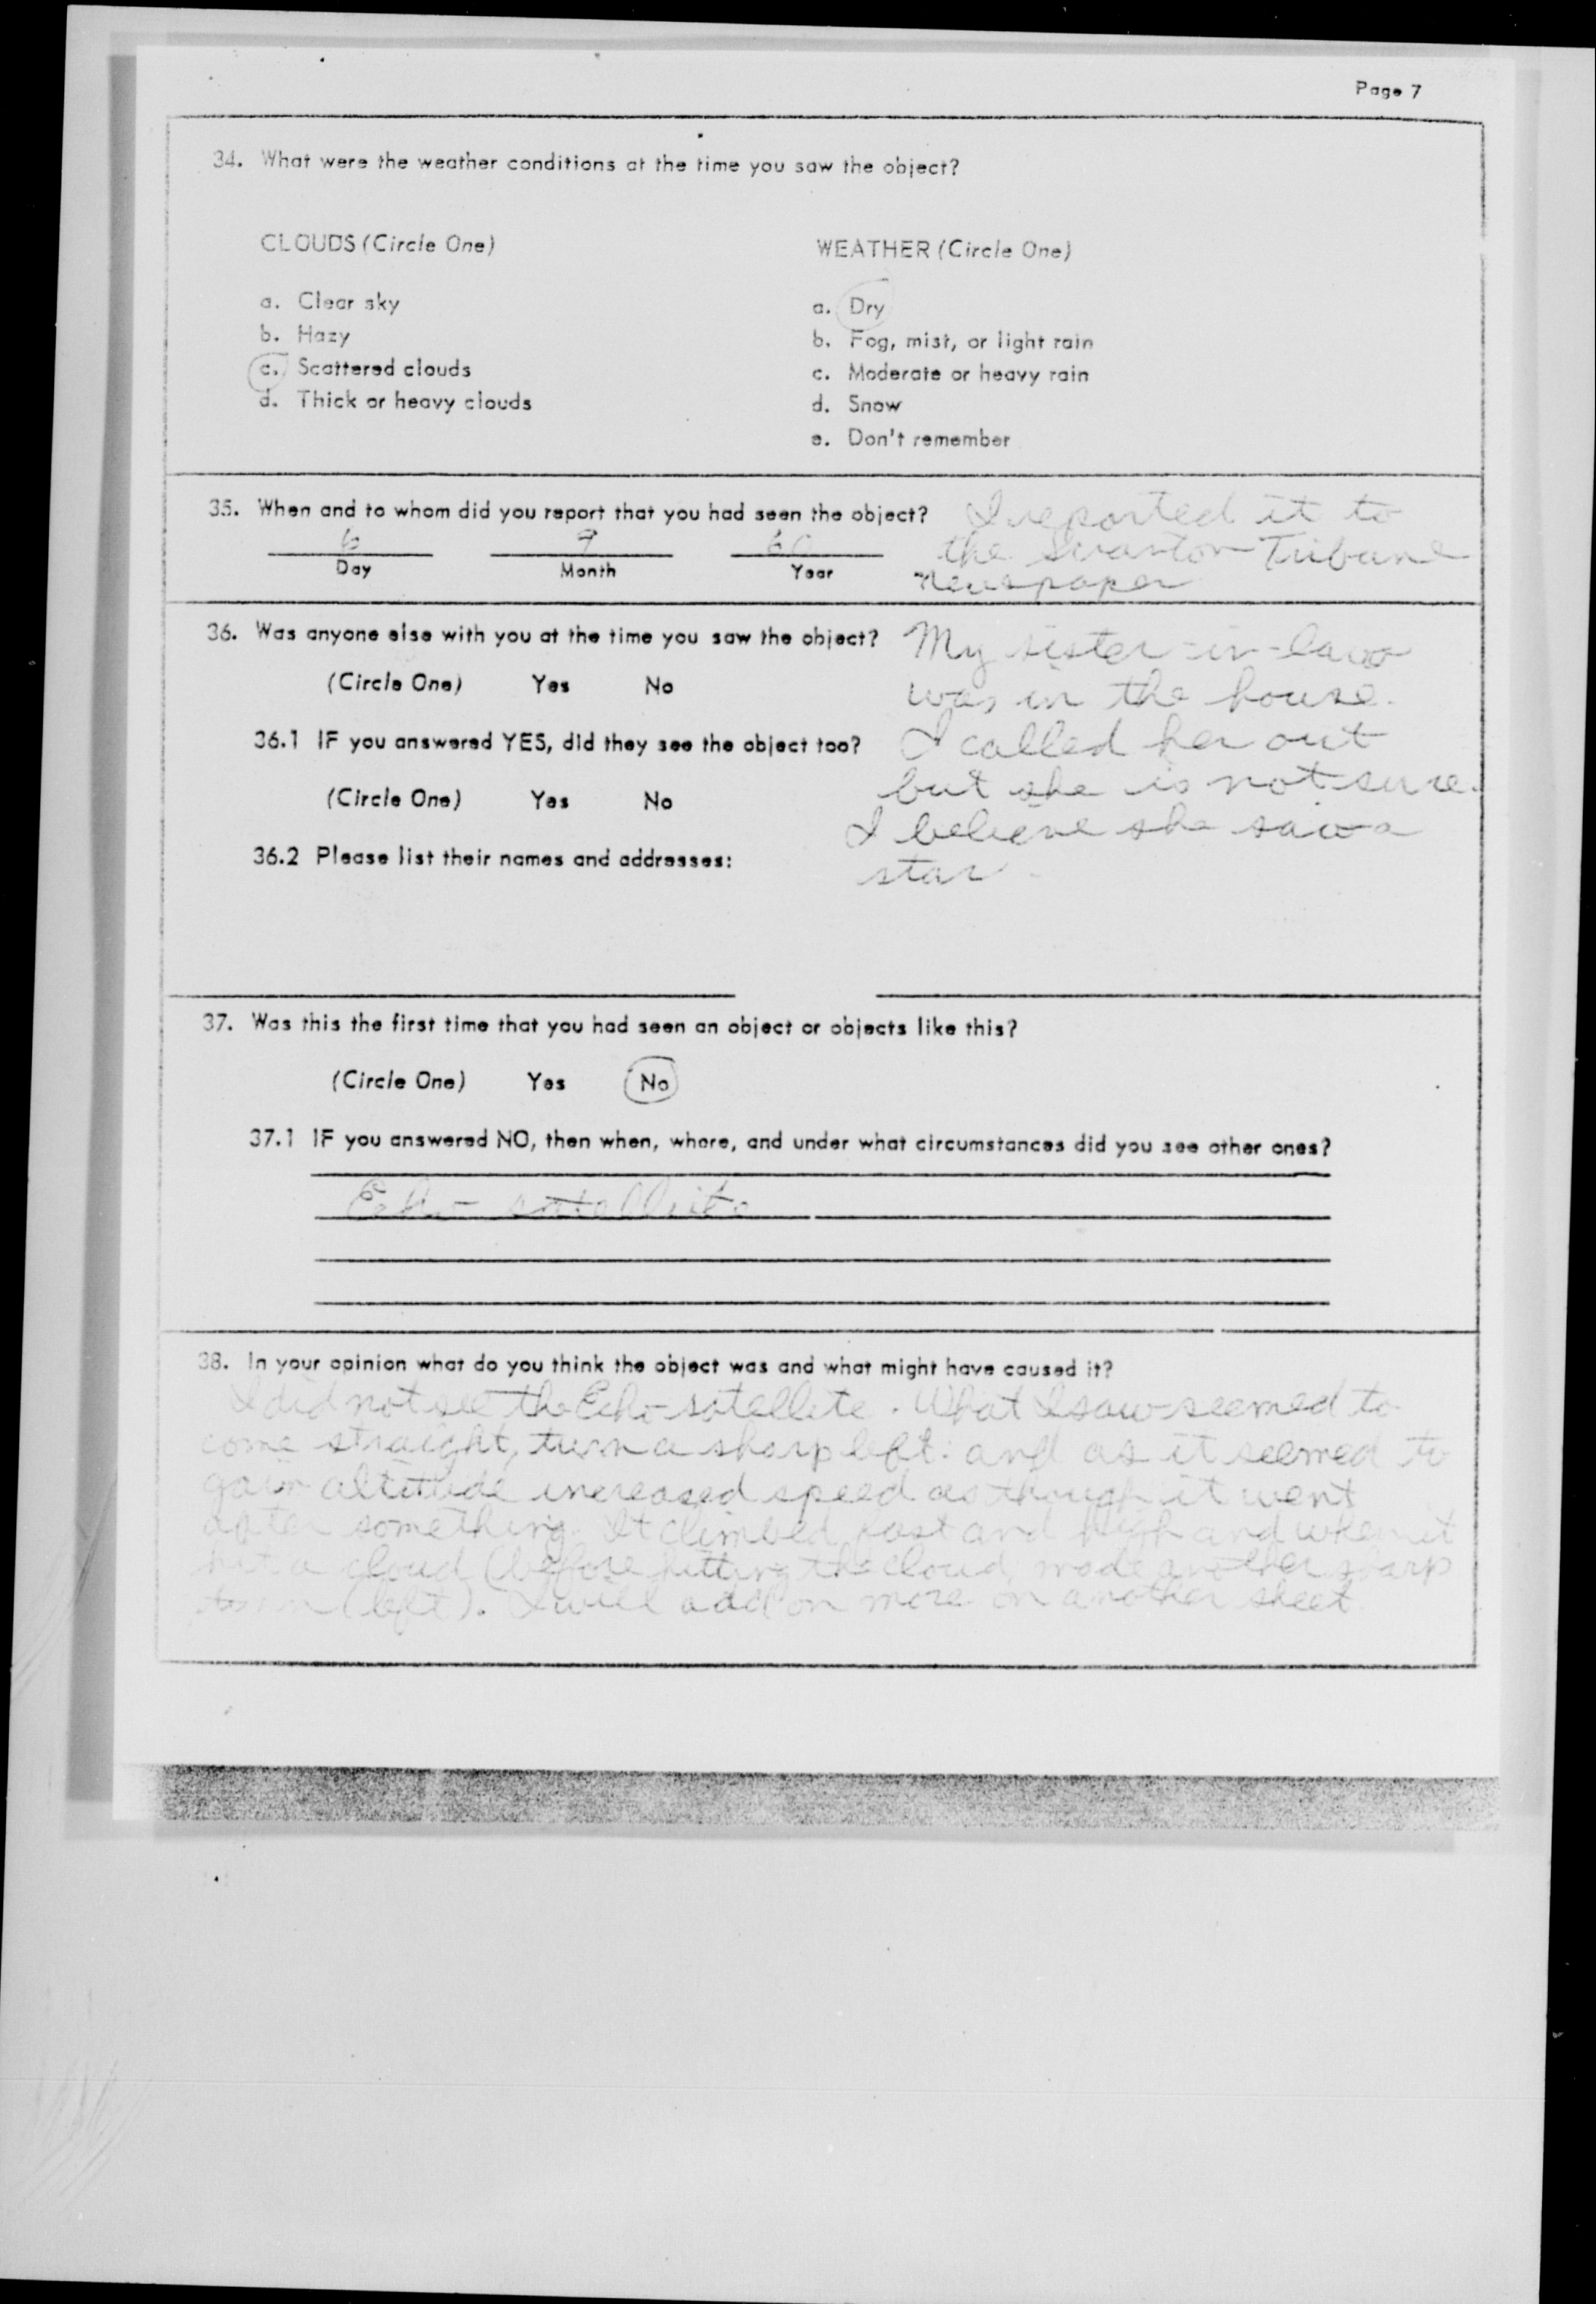 Page 7
34. What were the weather conditions at the time you saw the object?
CLOUDS (Circle One)
a. Clear sky
b. Hazy
c. Scattered clouds
d. Thick or heavy clouds
WEATHER (Circle One)
a. Dry
b. Fog, mist, or light rain
c. Moderate or heavy rain
d. Snow
e. Don't remember
35. When and to whom did you report that you had seen the object?
6 9 60
Day Month Year
I reported it to
the Scranton Tribune
newspaper
36. Was anyone else with you at the time you saw the object?
(Circle One) Yes No
36.1 IF you answered YES, did they see the object too?
(Circle One) Yes No
36.2 Please list their names and addresses:
My sister-in-law
was in the house.
I called her out
but she is not sure.
I believe she saw a
star
37. Was this the first time that you had seen an object or objects like this?
(Circle One) Yes No
37.1 IF you answered NO, then when, where, and under what circumstances did you see other ones?
Echo satellite
38. In your opinion what do you think the object was and what might have caused it?
I did not see the Echo satellite. What I saw seemed to
come straight, turn a sharp left. and as it seemed to
gain altitude increased speed as though it went
after something. It climbed fast and high and when it
hit a cloud (before hitting the cloud made another sharp
turn (left). I will add on more on another sheet.